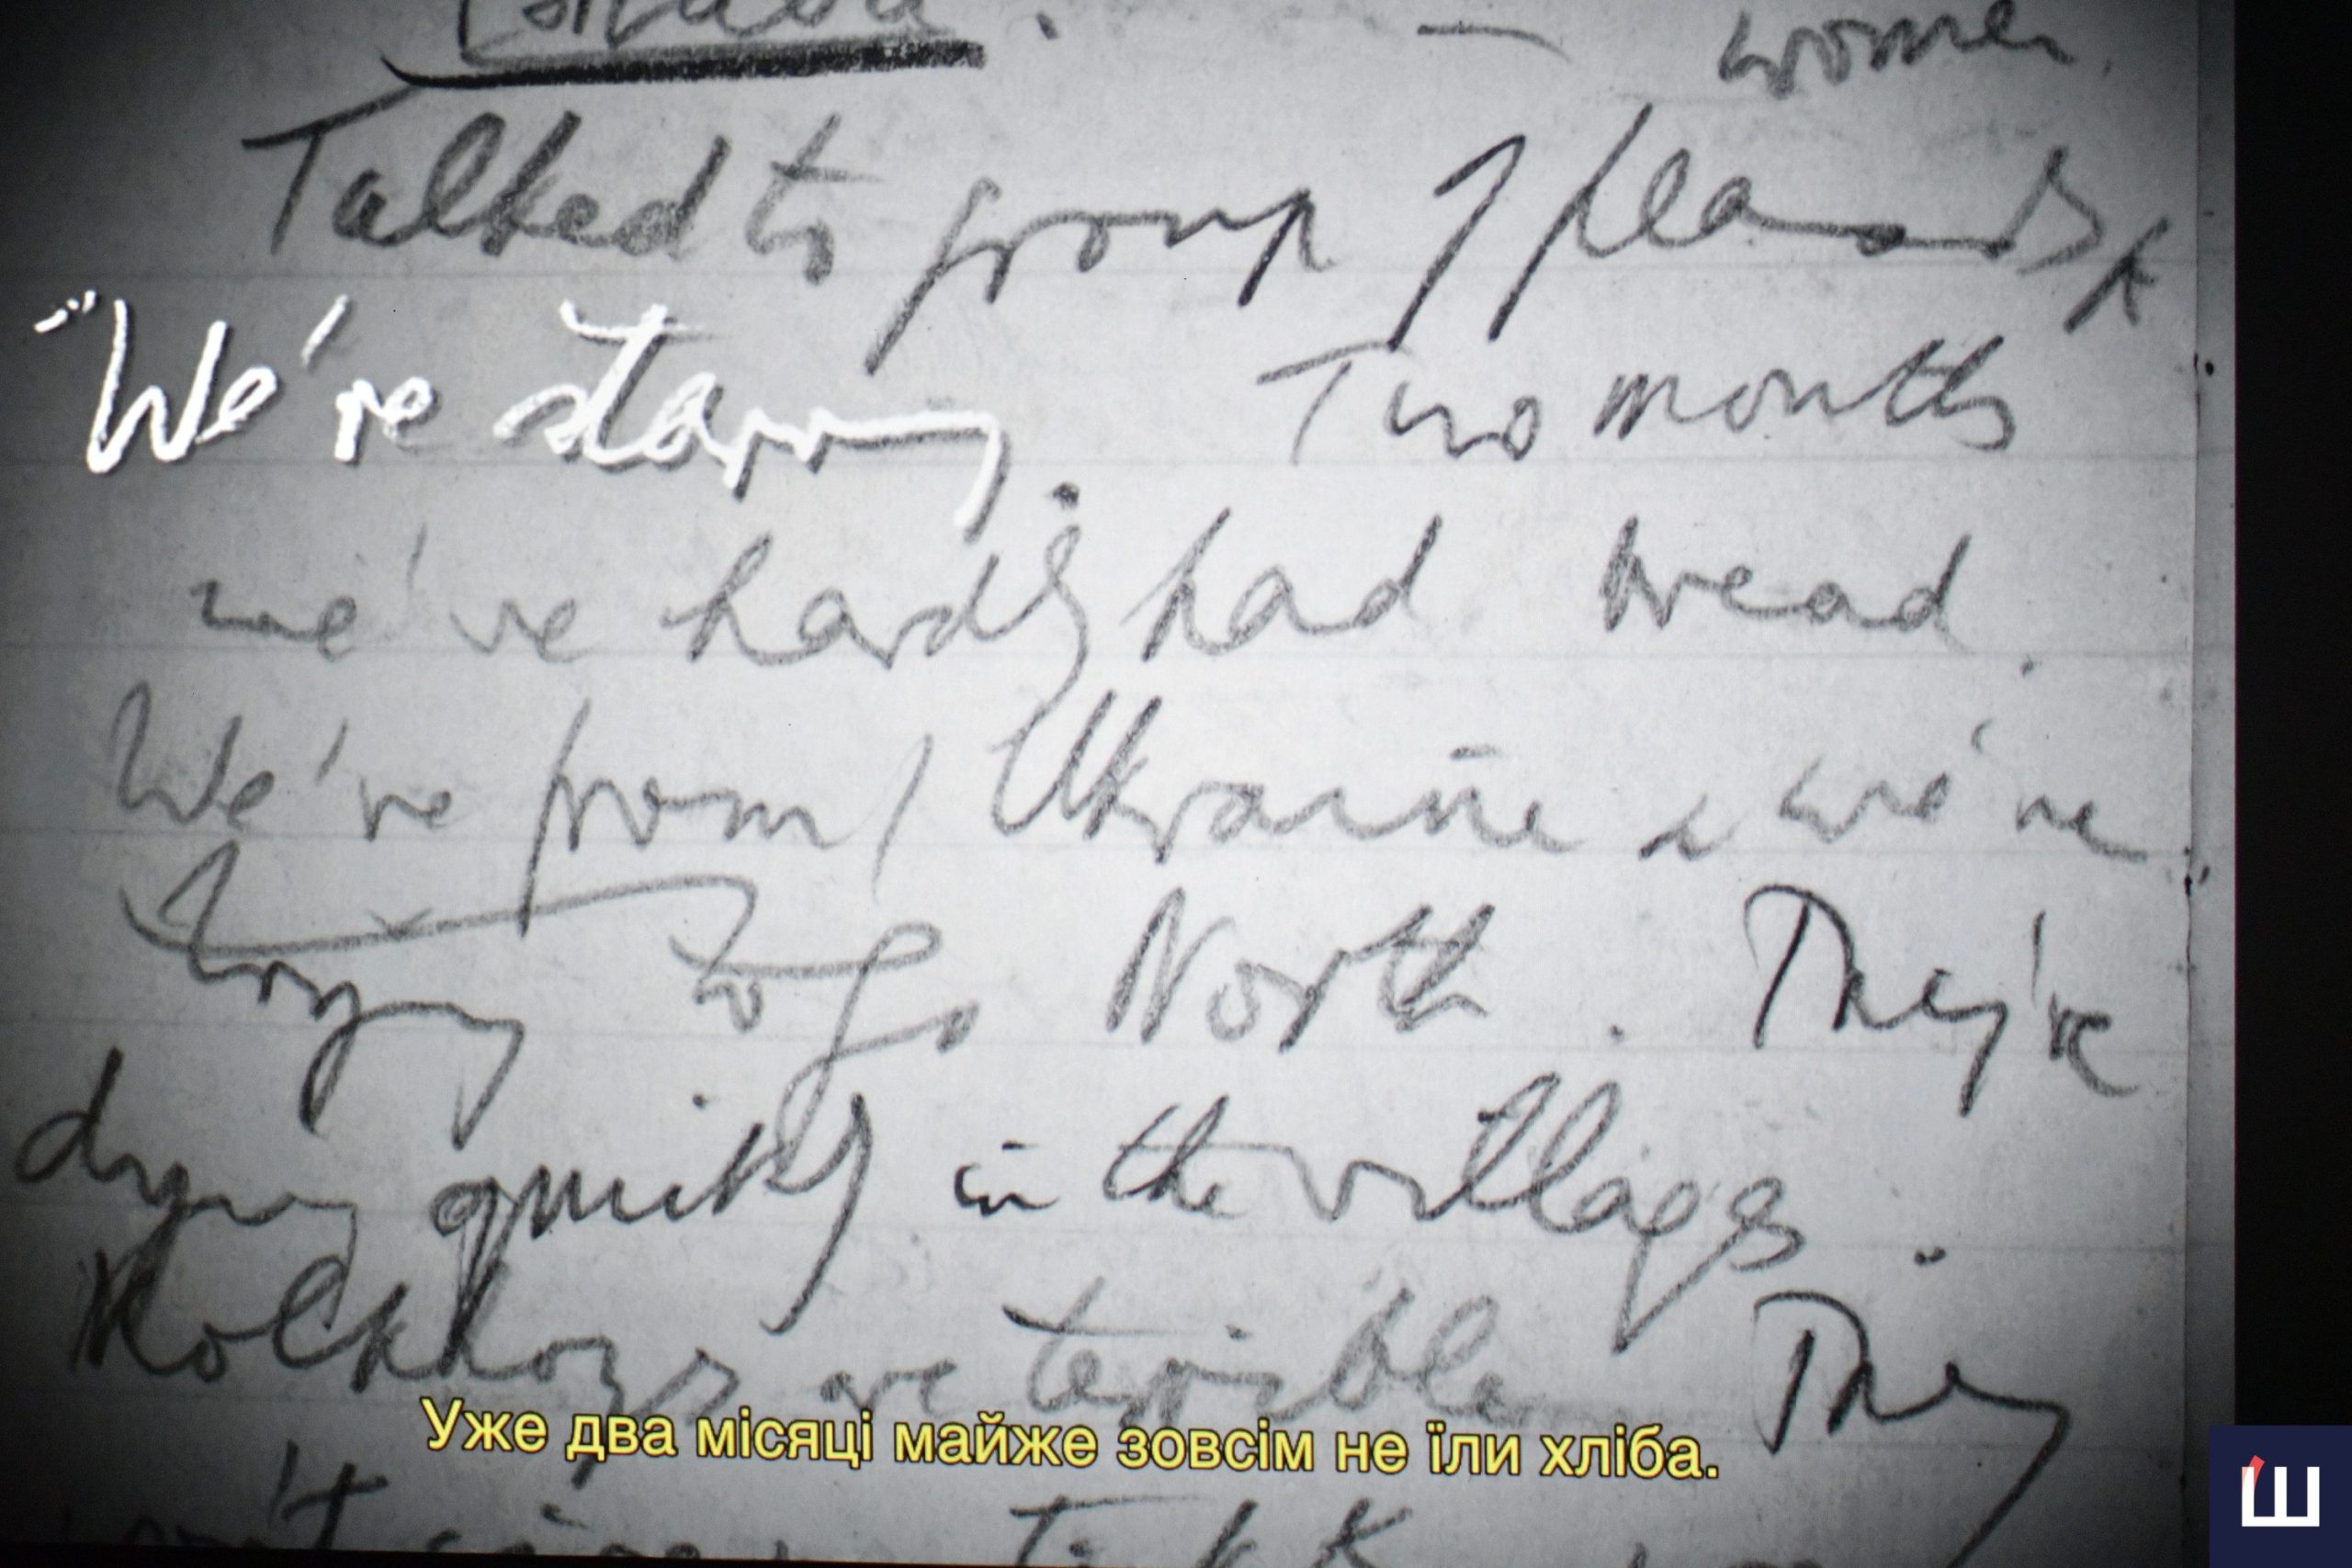 women.
Talked to group of peasants
"We're starving. Two months
we've hardly had bread.
We're from Ukraine & we're
trying to go North. They're
dying quickly in the villages.
Kolkhozs are terrible. They
Уже два місяці майже зовсім не їли хліба.
won't give
Ш